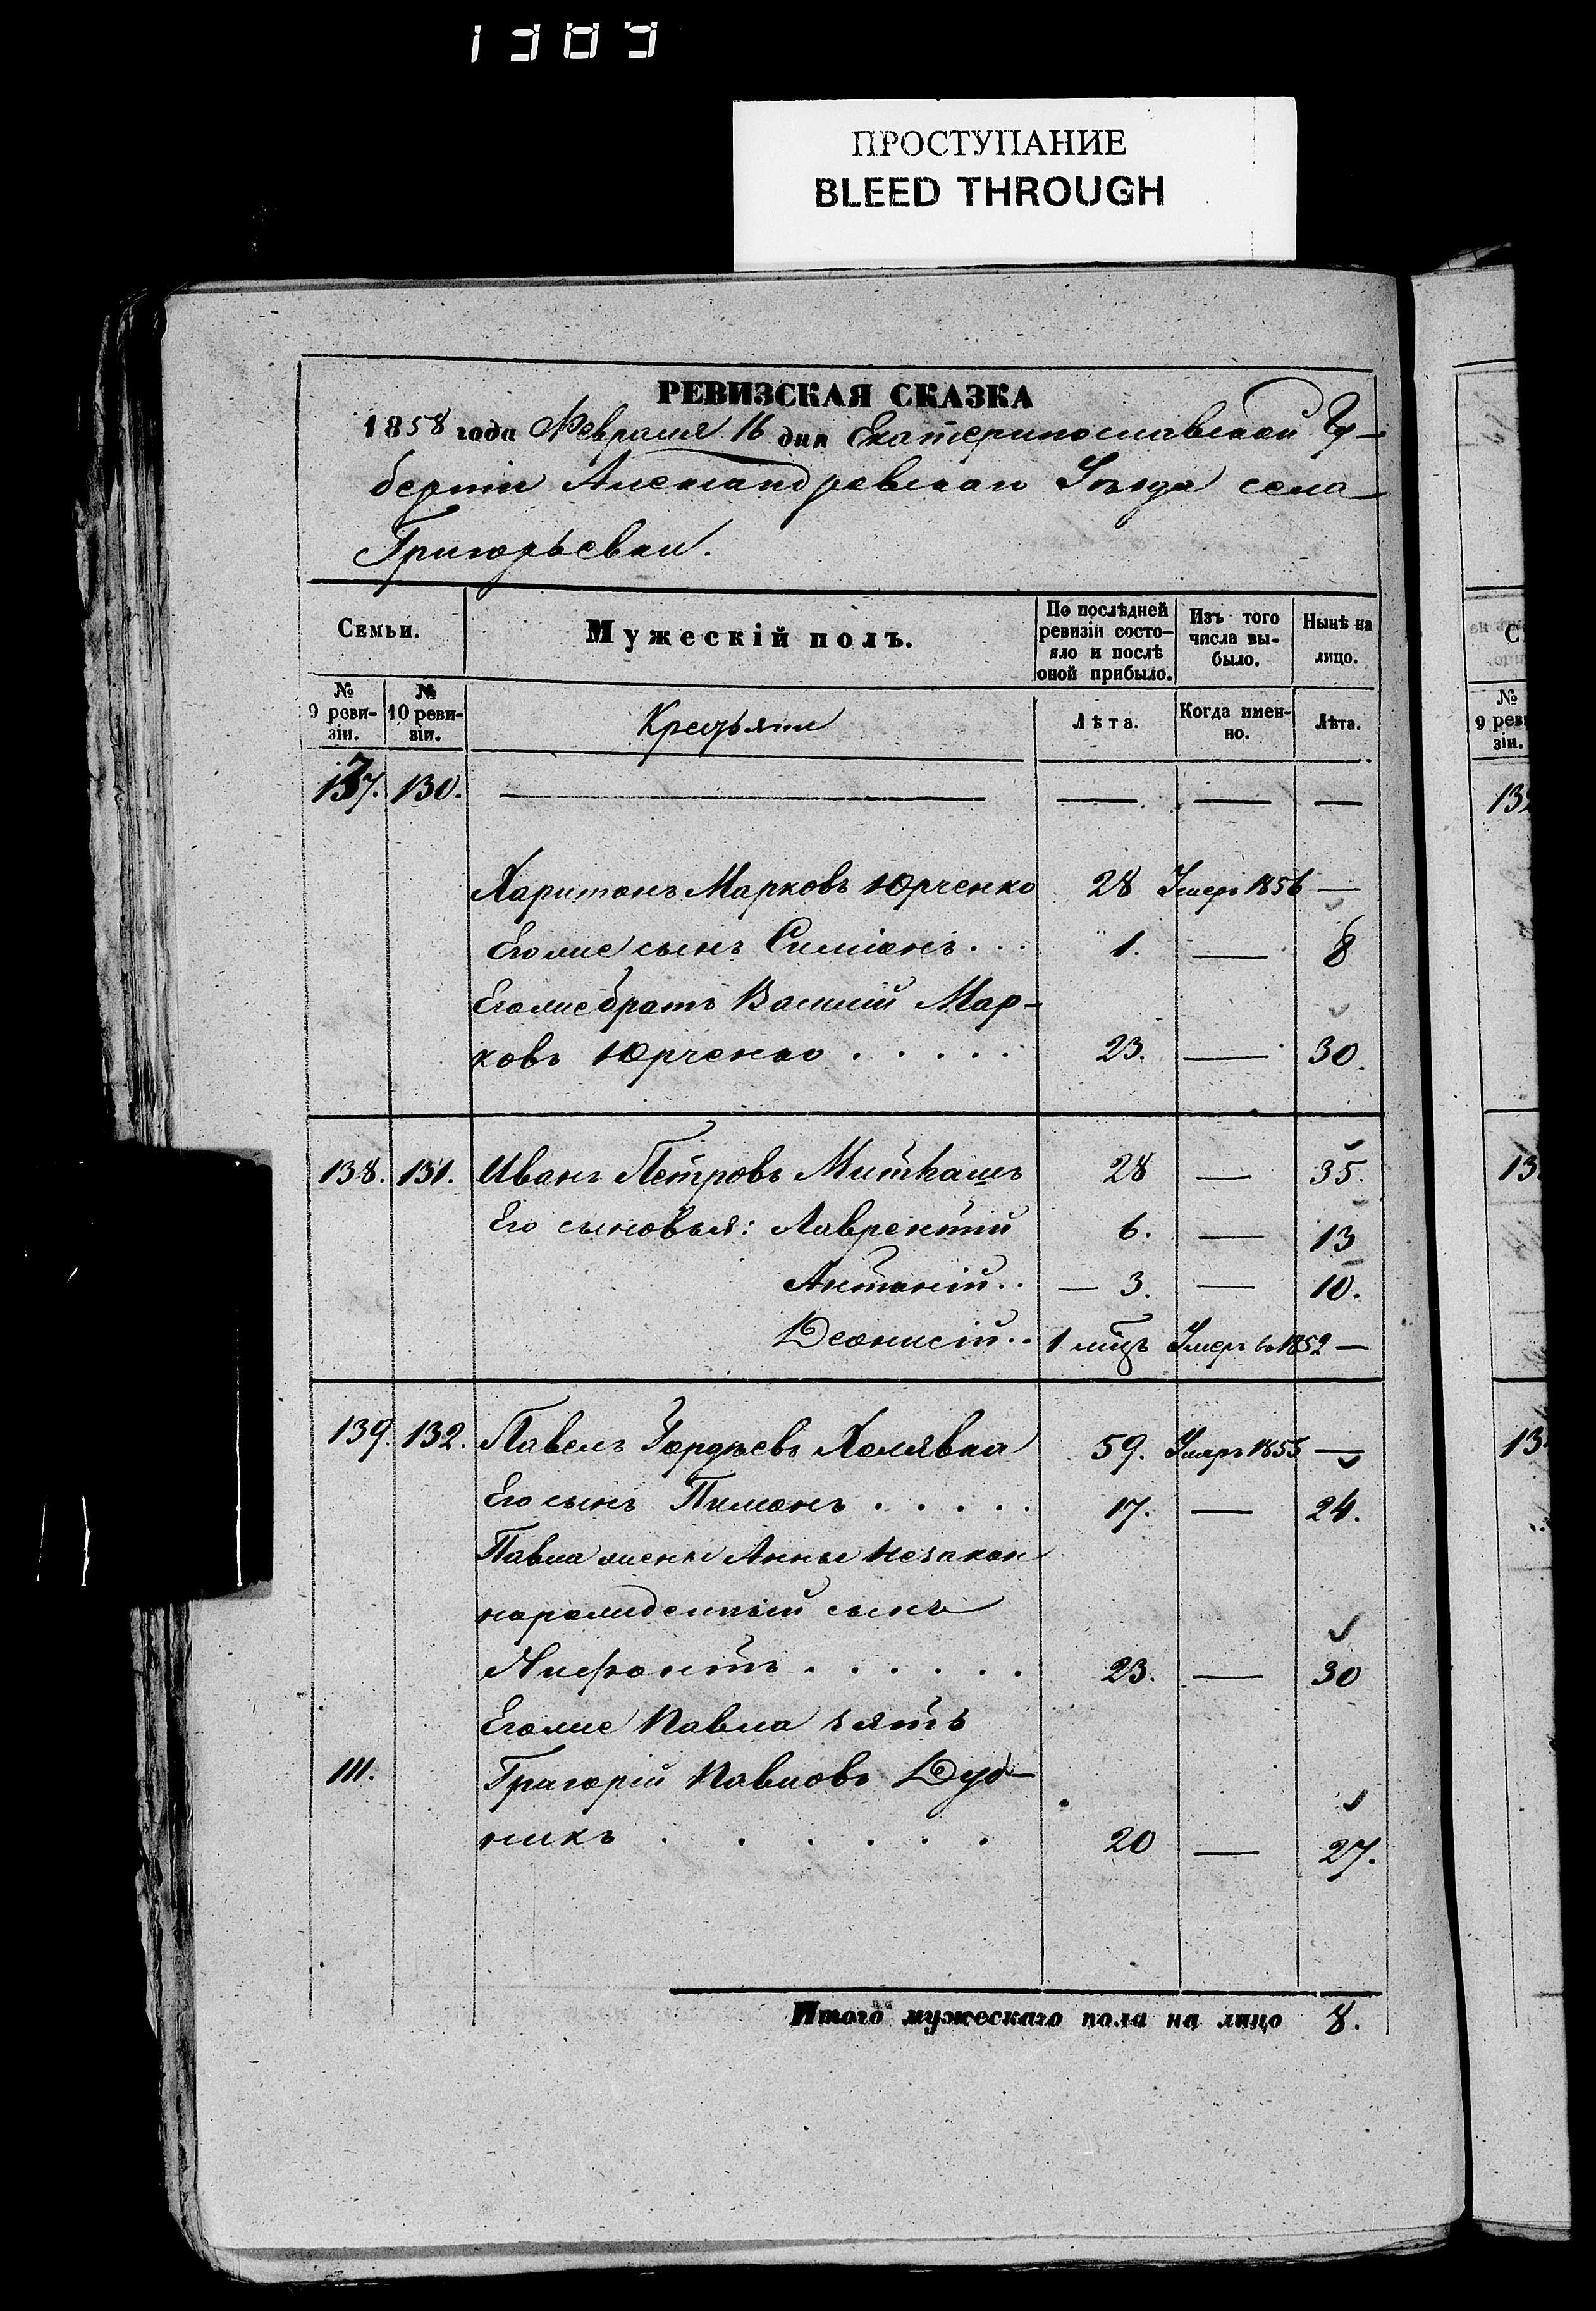 1383
ПРОСТУПАНИЕ
BLEED THROUGH
РЕВИЗСКАЯ СКАЗКА
1858 года Февраля 16 дня Екатеринославской Гу-
берніи Александровскаго Уѣзда села
Григорьевки.
Семьи. Мужескій полъ. По послѣдней ревизіи состо-яло и послѣ оной прибыло. Изъ того числа вы-было. Нынѣ на лицо.
№ 9 реви-зіи. № 10 реви-зіи. Крестьяне Лѣта. Когда имен-но. Лѣта.
137. 130. — — — —
Харитонъ Марковъ Юрченко 28 Умеръ 1856 —
Егоже сынъ Симіонъ... 1. — 8
Егоже братъ Василій Мар-
ковъ Юрченко ..... 23. — 30.
138. 131. Иванъ Петровъ Миткашъ 28 — 35.
Его сыновья: Лаврентій 6. — 13
Антоній.. — 3. — 10.
Деонисій.. 1 мѣц Умеръ въ 1852 —
139. 132. Павелъ Гордѣевъ Холявка 59. Умеръ 1855 —
Его сынъ Пимонъ ..... 17. — 24.
Павла жены Анны незакон
норожденный сынъ
Нифонтъ ...... 23. — 30
Егоже Павла зять
111. Григорій Павловъ Дуд-
никъ ...... 20 — 27.
Итого мужескаго пола на лицо 8.
С
№
9 рев
зіи.
13
13
13